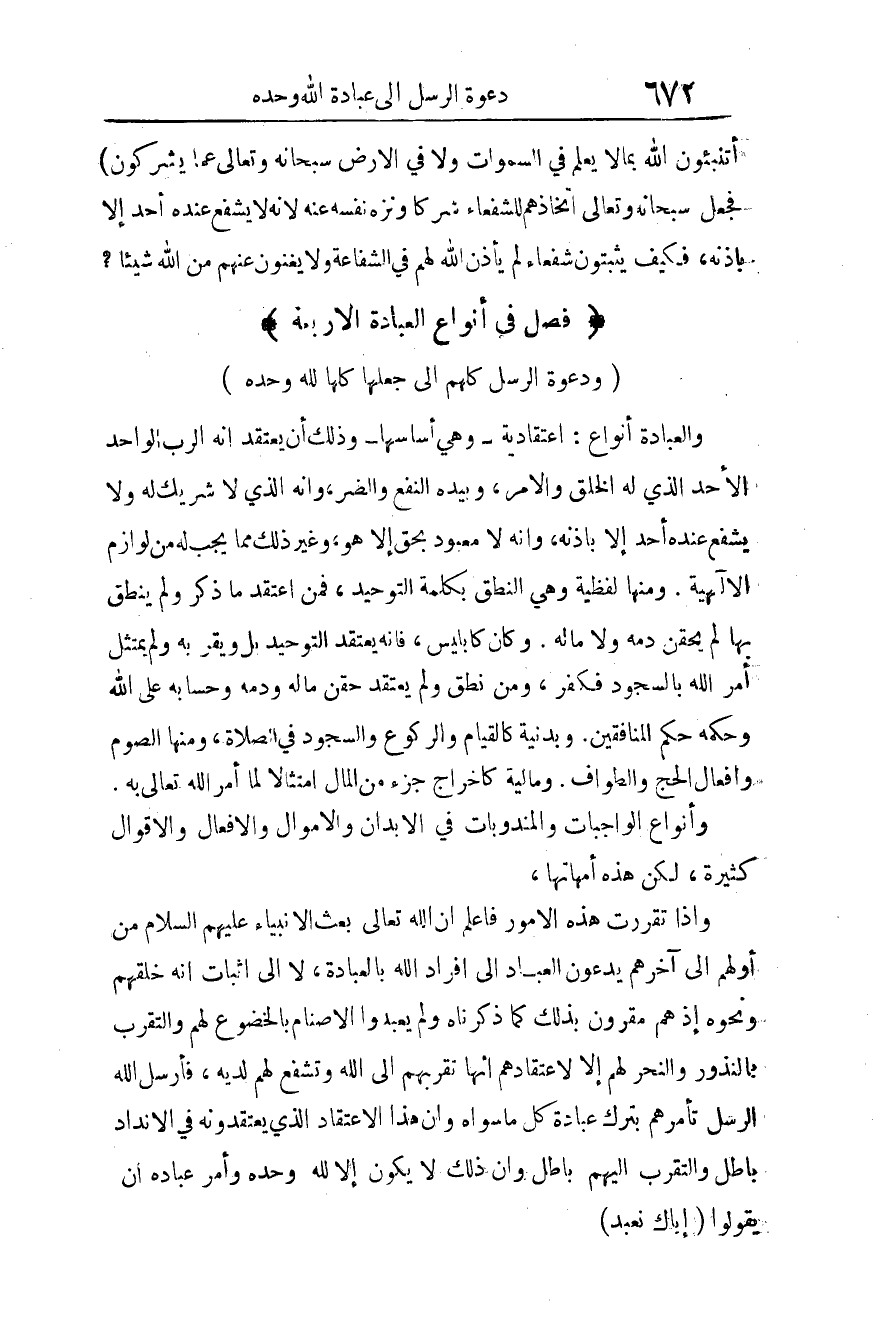 ٦٧٢ دعوة الرسل الى عبادة الله وحده
أتنبئون الله بمالا يعلم في السموات ولا في الارض سبحانه وتعالى عما يشركون)
فجعل سبحانه وتعالى اتخاذهم للشفعاء شركا ونزه نفسه عنه لانه لا يشفع عنده أحد إلا
باذنه، فكيف يثبتون شفعاء لم يأذن الله لهم في الشفاعة ولا يغنون عنهم من الله شيئا ؟
﴿ فصل في أنواع العبادة الاربعة ﴾
( ودعوة الرسل كلهم الى جعلها كلها لله وحده )
والعبادة أنواع : اعتقادية ـ وهي أساسها ـ وذلك أن يعتقد انه الرب الواحد
الأحد الذي له الخلق والامر، وبيده النفع والضر، وانه الذي لا شريك له ولا
يشفع عنده أحد إلا باذنه، وانه لا معبود بحق إلا هو، وغير ذلك مما يجب له من لوازم
الاآلهية . ومنها لفظية وهي النطق بكلمة التوحيد ، فمن اعتقد ما ذكر ولم ينطق
بها لم يحقن دمه ولا ماله . وكان كابليس ، فانه يعتقد التوحيد بل ويقر به ولم يمتثل
أمر الله بالسجود فكفر ، ومن نطق ولم يعتقد حقن ماله ودمه وحسابه على الله
وحكمه حكم المنافقين. وبدنية كالقيام والركوع والسجود في الصلاة، ومنها الصوم
وافعال الحج والطواف . ومالية كاخراج جزء من المال امتثالا لما أمر الله تعالى به .
وأنواع الواجبات والمندوبات في الابدان والاموال والافعال والاقوال
كثيرة ، لكن هذه أمهاتها ،
واذا تقررت هذه الامور فاعلم ان الله تعالى بعث الانبياء عليهم السلام من
أولهم الى آخرهم يدعون العباد الى افراد الله بالعبادة ، لا الى اثبات انه خلقهم
ونحوه إذ هم مقرون بذلك كما ذكرناه ولم يعبدوا الاصنام بالخضوع لهم والتقرب
بالنذور والنحر لهم إلا لاعتقادهم انها تقربهم الى الله وتشفع لهم لديه ، فأرسل الله
الرسل تأمرهم بترك عبادة كل ما سواه وان هذا الاعتقاد الذي يعتقدونه في الانداد
باطل والتقرب اليهم باطل وان ذلك لا يكون إلا لله وحده وأمر عباده ان
يقولوا ( إياك نعبد)